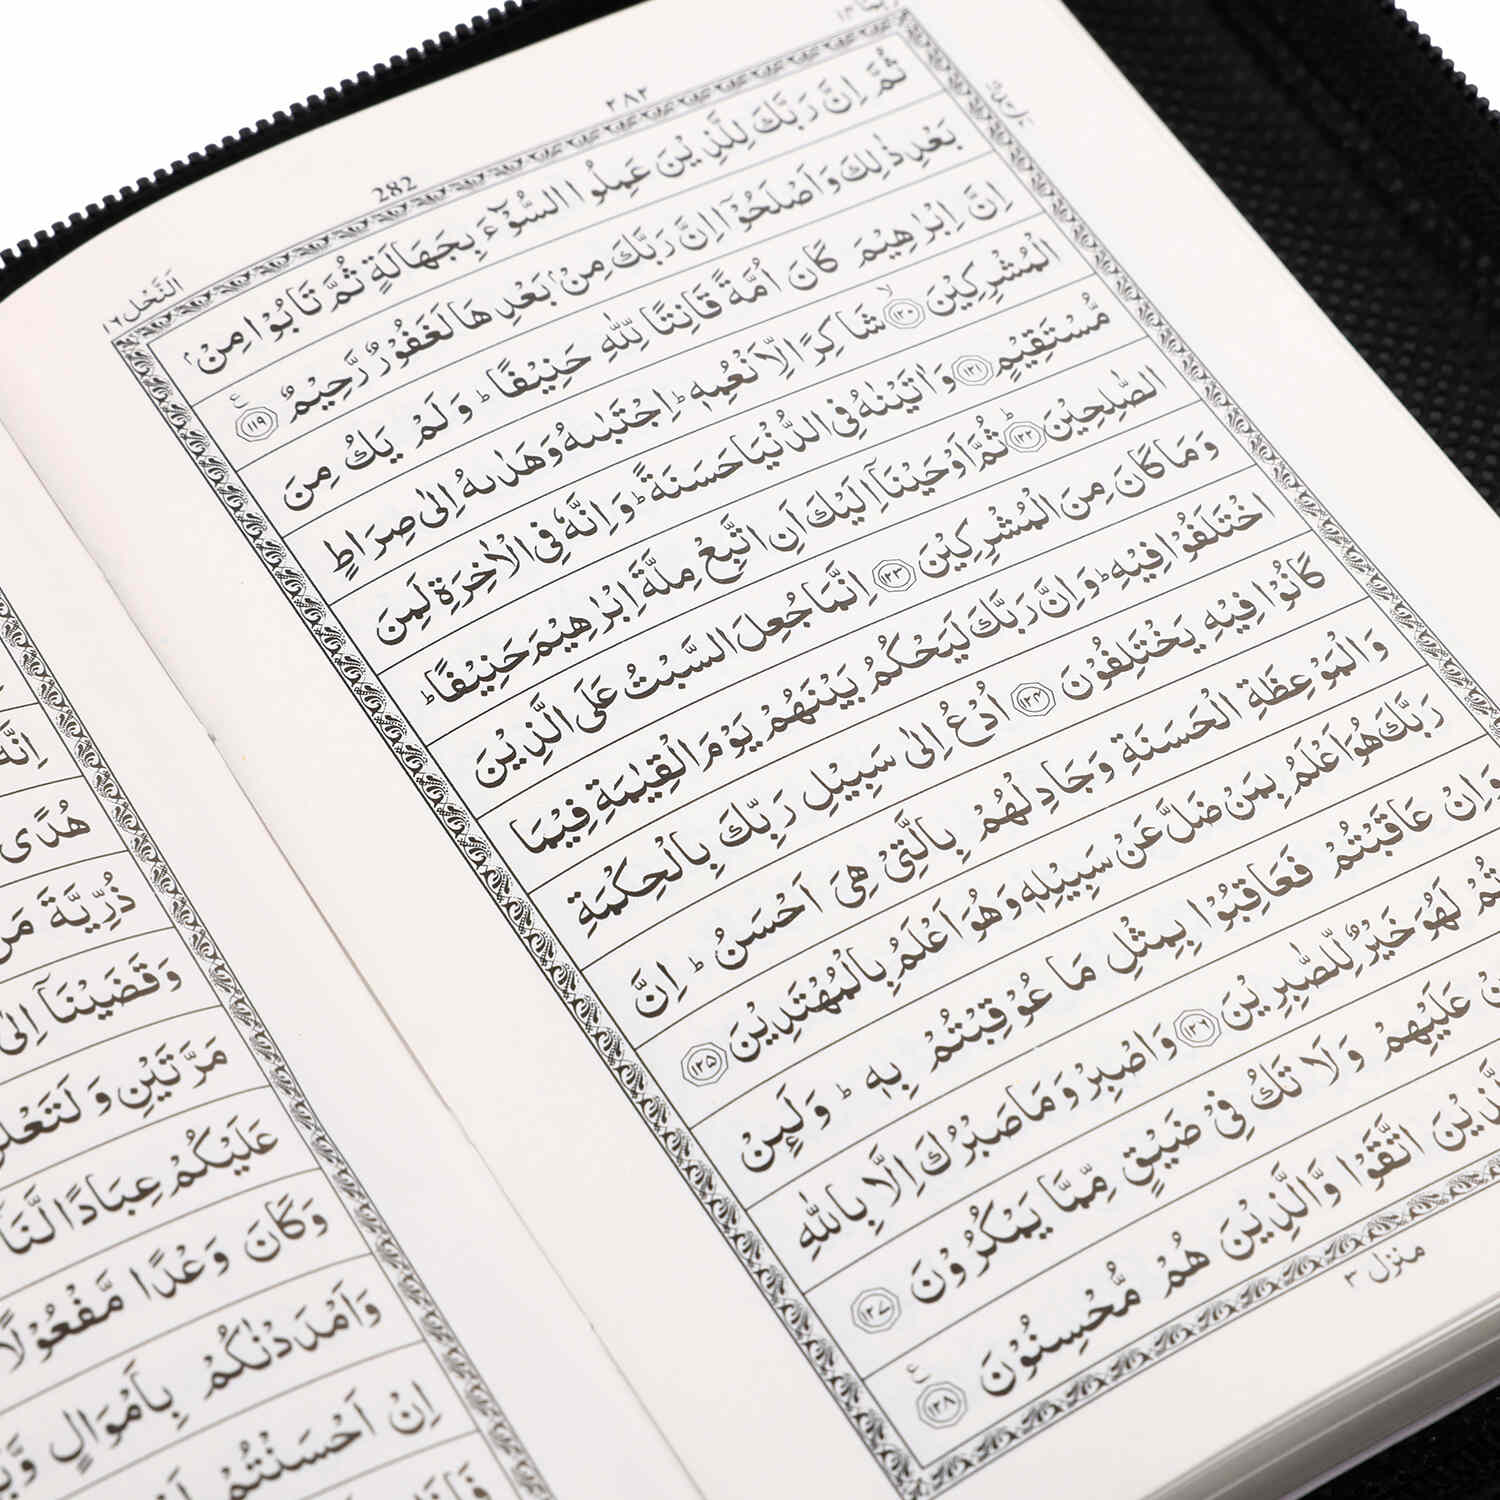 ٢٨٢
282
اَلنَّحْل ١٦
ثُمَّ اِنَّ رَبَّكَ لِلَّذِيْنَ عَمِلُوا السُّوْٓءَ بِجَهَالَةٍ ثُمَّ تَابُوْا مِنْۢ
بَعْدِ ذٰلِكَ وَاَصْلَحُوْٓا اِنَّ رَبَّكَ مِنْۢ بَعْدِهَا لَغَفُوْرٌ رَّحِيْمٌ ۧ ﴿١١٩﴾
اِنَّ اِبْرٰهِيْمَ كَانَ اُمَّةً قَانِتًا لِّلّٰهِ حَنِيْفًا ؕ وَلَمْ يَكُ مِنَ
الْمُشْرِكِيْنَ ۙ ﴿١٢٠﴾ شَاكِرًا لِّاَنْعُمِهٖ ؕ اِجْتَبٰىهُ وَهَدٰىهُ اِلٰى صِرَاطٍ
مُّسْتَقِيْمٍ ﴿١٢١﴾ وَاٰتَيْنٰهُ فِى الدُّنْيَا حَسَنَةً ؕ وَاِنَّهٗ فِى الْاٰخِرَةِ لَمِنَ
الصّٰلِحِيْنَ ؕ ﴿١٢٢﴾ ثُمَّ اَوْحَيْنَاۤ اِلَيْكَ اَنِ اتَّبِعْ مِلَّةَ اِبْرٰهِيْمَ حَنِيْفًا ؕ
وَمَا كَانَ مِنَ الْمُشْرِكِيْنَ ﴿١٢٣﴾ اِنَّمَا جُعِلَ السَّبْتُ عَلَى الَّذِيْنَ
اخْتَلَفُوْا فِيْهِ ؕ وَاِنَّ رَبَّكَ لَيَحْكُمُ بَيْنَهُمْ يَوْمَ الْقِيٰمَةِ فِيْمَا
كَانُوْا فِيْهِ يَخْتَلِفُوْنَ ﴿١٢٤﴾ اُدْعُ اِلٰى سَبِيْلِ رَبِّكَ بِالْحِكْمَةِ
وَالْمَوْعِظَةِ الْحَسَنَةِ وَجَادِلْهُمْ بِالَّتِىْ هِىَ اَحْسَنُ ؕ اِنَّ
رَبَّكَ هُوَ اَعْلَمُ بِمَنْ ضَلَّ عَنْ سَبِيْلِهٖ وَهُوَ اَعْلَمُ بِالْمُهْتَدِيْنَ ﴿١٢٥﴾
وَاِنْ عَاقَبْتُمْ فَعَاقِبُوْا بِمِثْلِ مَا عُوْقِبْتُمْ بِهٖ ؕ وَلَىِٕنْ
لَهُوَ خَيْرٌ لِّلصّٰبِرِيْنَ ﴿١٢٦﴾ وَاصْبِرْ وَمَا صَبْرُكَ اِلَّا بِاللّٰهِ
عَلَيْهِمْ وَلَا تَكُ فِىْ ضَيْقٍ مِّمَّا يَمْكُرُوْنَ ﴿١٢٧﴾
اتَّقَوْا وَّالَّذِيْنَ هُمْ مُّحْسِنُوْنَ ﴿١٢٨﴾
منزل ٣
اِنَّهٗ
هُدًى
ذُرِّيَّةَ
وَقَضَيْنَاۤ اِلٰى
مَرَّتَيْنِ وَ
عَلَيْكُمْ عِبَادًا لَّنَاۤ
وَكَانَ وَعْدًا مَّفْعُوْلًا
وَاَمْدَدْنٰكُمْ بِاَمْوَالٍ
اِنْ اَحْسَنْتُمْ